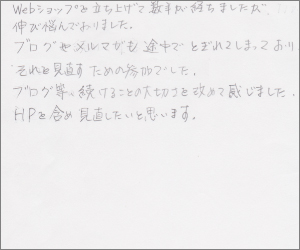 Webショップを立ち上げて数年が経ちましたが、
伸び悩んでおりました。
ブログやメルマガも途中でとぎれてしまっており
それを見直すための参加でした。
ブログ等、続けることの大切さを改めて感じました。
HPを含め見直したいと思います。